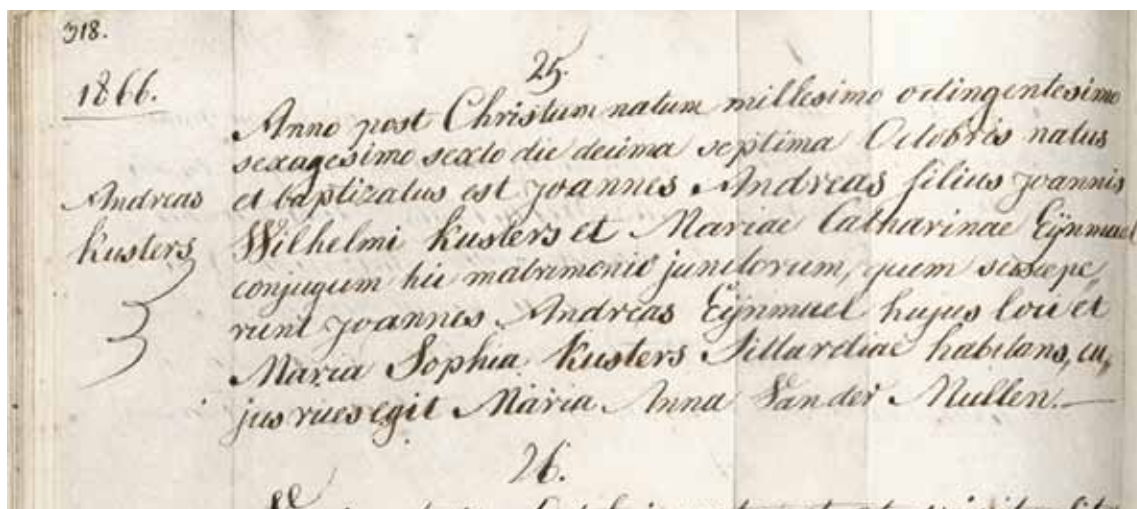 318.
1866.
25.
Anno post Christum natum millesimo octingentesimo
sexagesimo sexto die decima septima Octobris natus
et baptizatus est Joannes Andreas filius Joannis
Wilhelmi Kusters et Mariae Catharinae Eijnmael
conjugum hic matrimonio junctorum, quem suscepe„
runt Joannes Andreas Eijnmuel hujus loci et
Maria Sophia Kusters Sittardiae habitans, cu„
jus vices egit Maria Anna Van der Mullen.—
Andreas
Kusters
26.